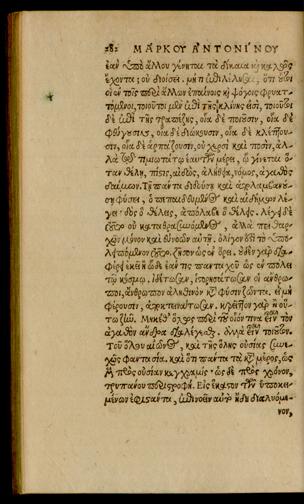 282 ΜΑΡΚΟΥ ΑΝΤΩΝΙΝΟΥ
ἐὰν ὑπὸ ἄλλου γένηται τὰ δίκαια καὶ καλῶς
ἔχοντα; οὐ διοίσει. μήτι ἐπιλέλησαι, ὅτι οὗτοι
οἱ ἐν τοῖς περὶ ἄλλων ἐπαίνοις καὶ ψόγοις φρυατ-
τόμενοι, τοιοῦτοι μὲν ἐπὶ τῆς κλίνης εἰσὶ, τοιοῦτοι
δὲ ἐπὶ τῆς τραπέζης, οἷα δὲ ποιοῦσιν, οἷα δὲ
φεύγουσιν, οἷα δὲ διώκουσιν, οἷα δὲ κλέπτου-
σιν, οἷα δὲ ἁρπάζουσιν, οὐ χερσὶ καὶ ποσὶν, ἀλ-
λὰ τῷ τιμιωτάτῳ ἑαυτῶν μέρει, ᾧ γίνεται ὅ-
ταν θέλῃ, πίστις, αἰδὼς, ἀλήθεια, νόμος, ἀγαθὸς
δαίμων. Τῇ πάντα διδούσῃ καὶ ἀπολαμβανού-
σῃ φύσει, ὁ πεπαιδευμένος καὶ αἰδήμων λέ-
γει· δὸς ὃ θέλεις, ἀπόλαβε ὃ θέλεις. λέγει δὲ
τοῦτο οὐ καταθρασυνόμενος, ἀλλὰ πειθαρ-
χῶν μόνον καὶ εὐνοῶν αὐτῇ. ὀλίγον ἐστὶ τὸ ὑπο-
λειπόμενον τοῦτο. ζῆσον ὡς ἐν ὄρει. οὐδὲν γὰρ δια-
φέρει ἐκεῖ ἢ ὧδε ἐάν τις πανταχοῦ ὡς ἐν πόλει
τῷ κόσμῳ. ἰδέτωσαν, ἱστορησάτωσαν οἱ ἄνθρω-
ποι, ἄνθρωπον ἀληθινὸν κατὰ φύσιν ζῶντα. εἰ μὴ
φέρουσιν, ἀποκτεινάτωσαν. κρεῖττον γὰρ ἢ οὕ-
τω ζῆν. Μηκέθ' ὅλως περὶ τοῦ οἷόν τινα εἶναι τὸν
ἀγαθὸν ἄνδρα διαλέγεσθαι, ἀλλὰ εἶναι τοιοῦτον.
Τοῦ ὅλου αἰῶνος, καὶ τῆς ὅλης οὐσίας συνε-
χῶς φαντασία, καὶ ὅτι πάντα τὰ κατὰ μέρος, ὡς
μὲν πρὸς οὐσίαν κεγχραμίς· ὡς δὲ πρὸς χρόνον,
τρυπάνου περιστροφή. Εἰς ἕκαστον τῶν ὑποκει-
μένων ἐφιστάντα, ἐπινοεῖν αὐτὸ ἤδη διαλυόμε-
νον,